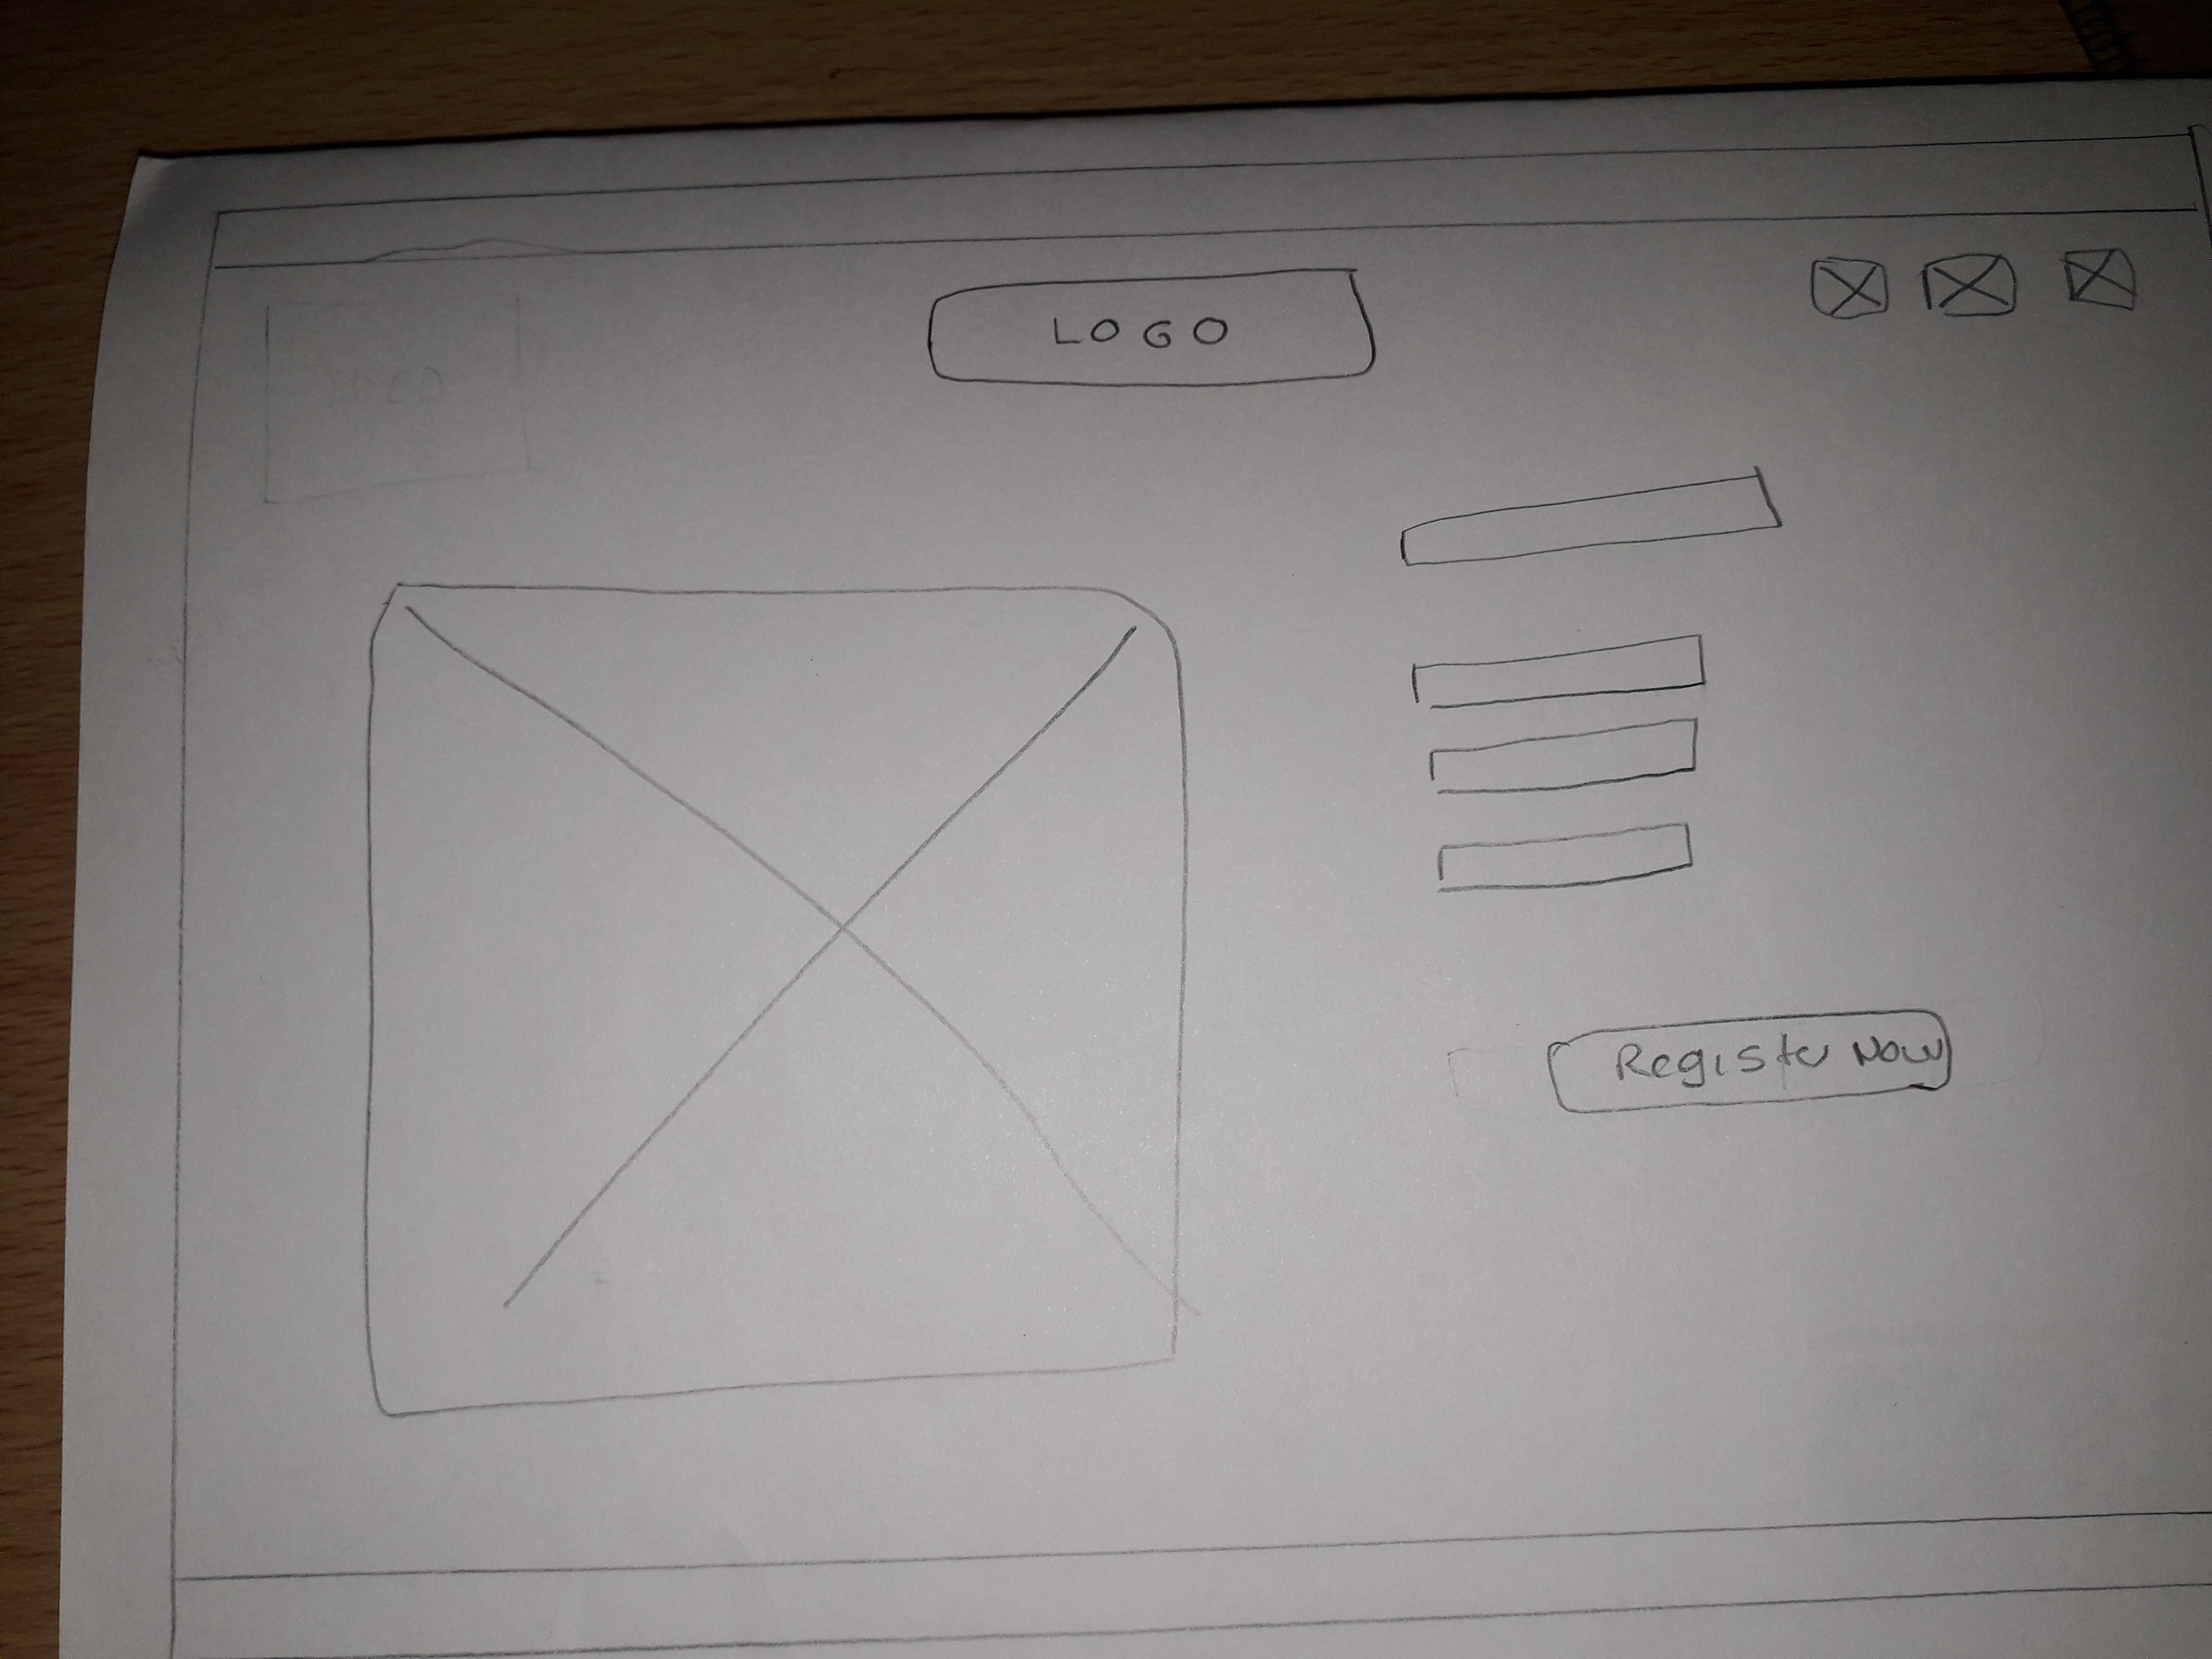 LOGO
Register Now